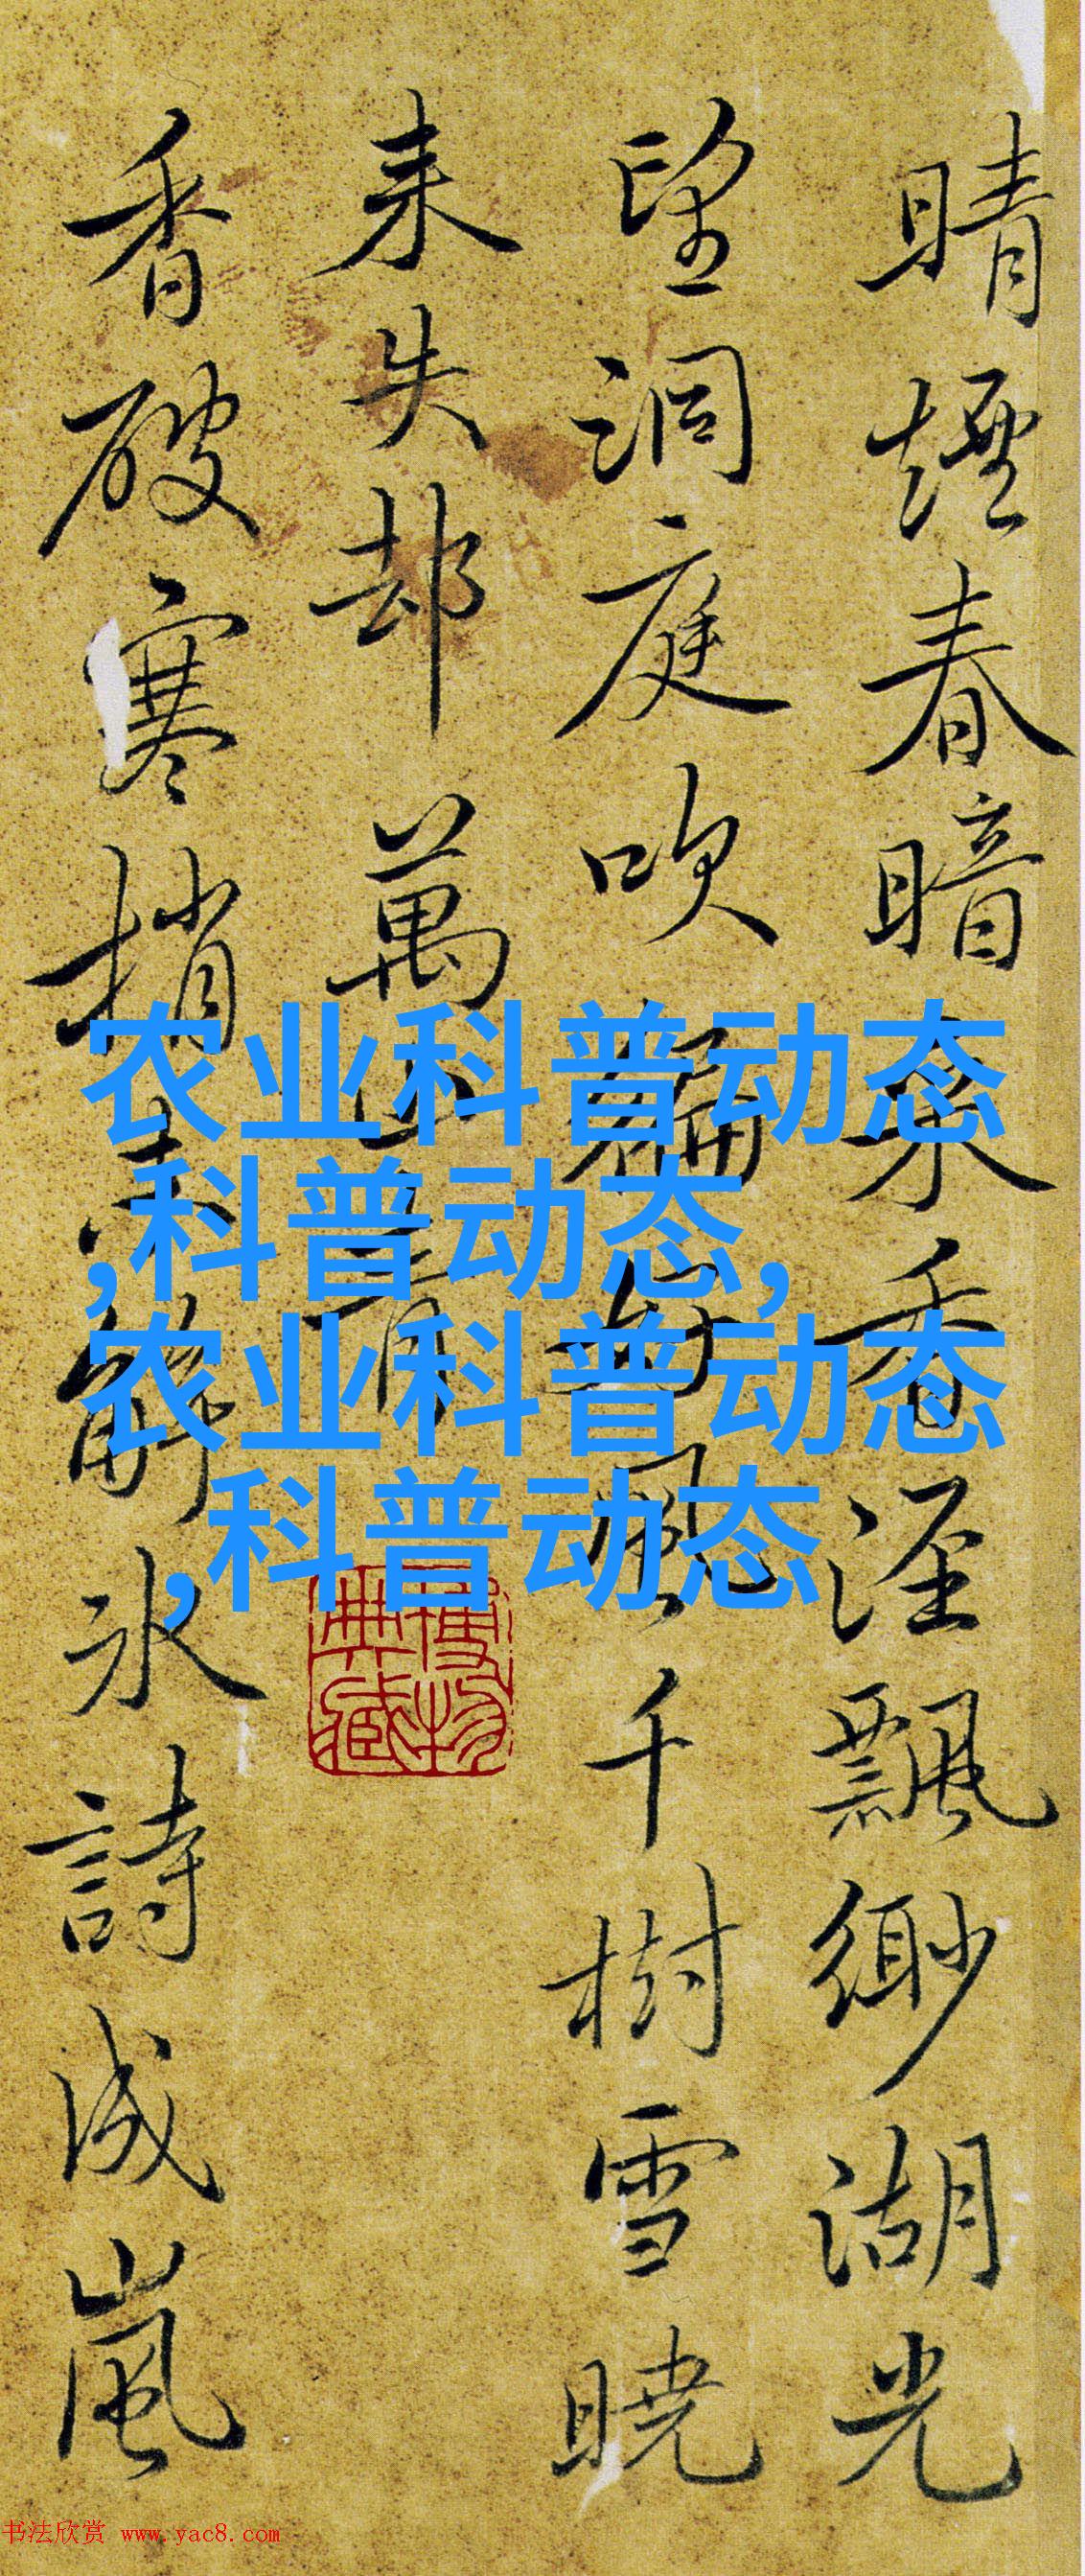 晴煙春暗香飄緲湖光
望洞庭吹風千樹雪曉
来失却萬青
香破寒梢解冰詩成嵐
農业科普动态
,科普动态,
农业科普动态
,科普动态
博物
典藏
书法欣赏 www.yac8.com